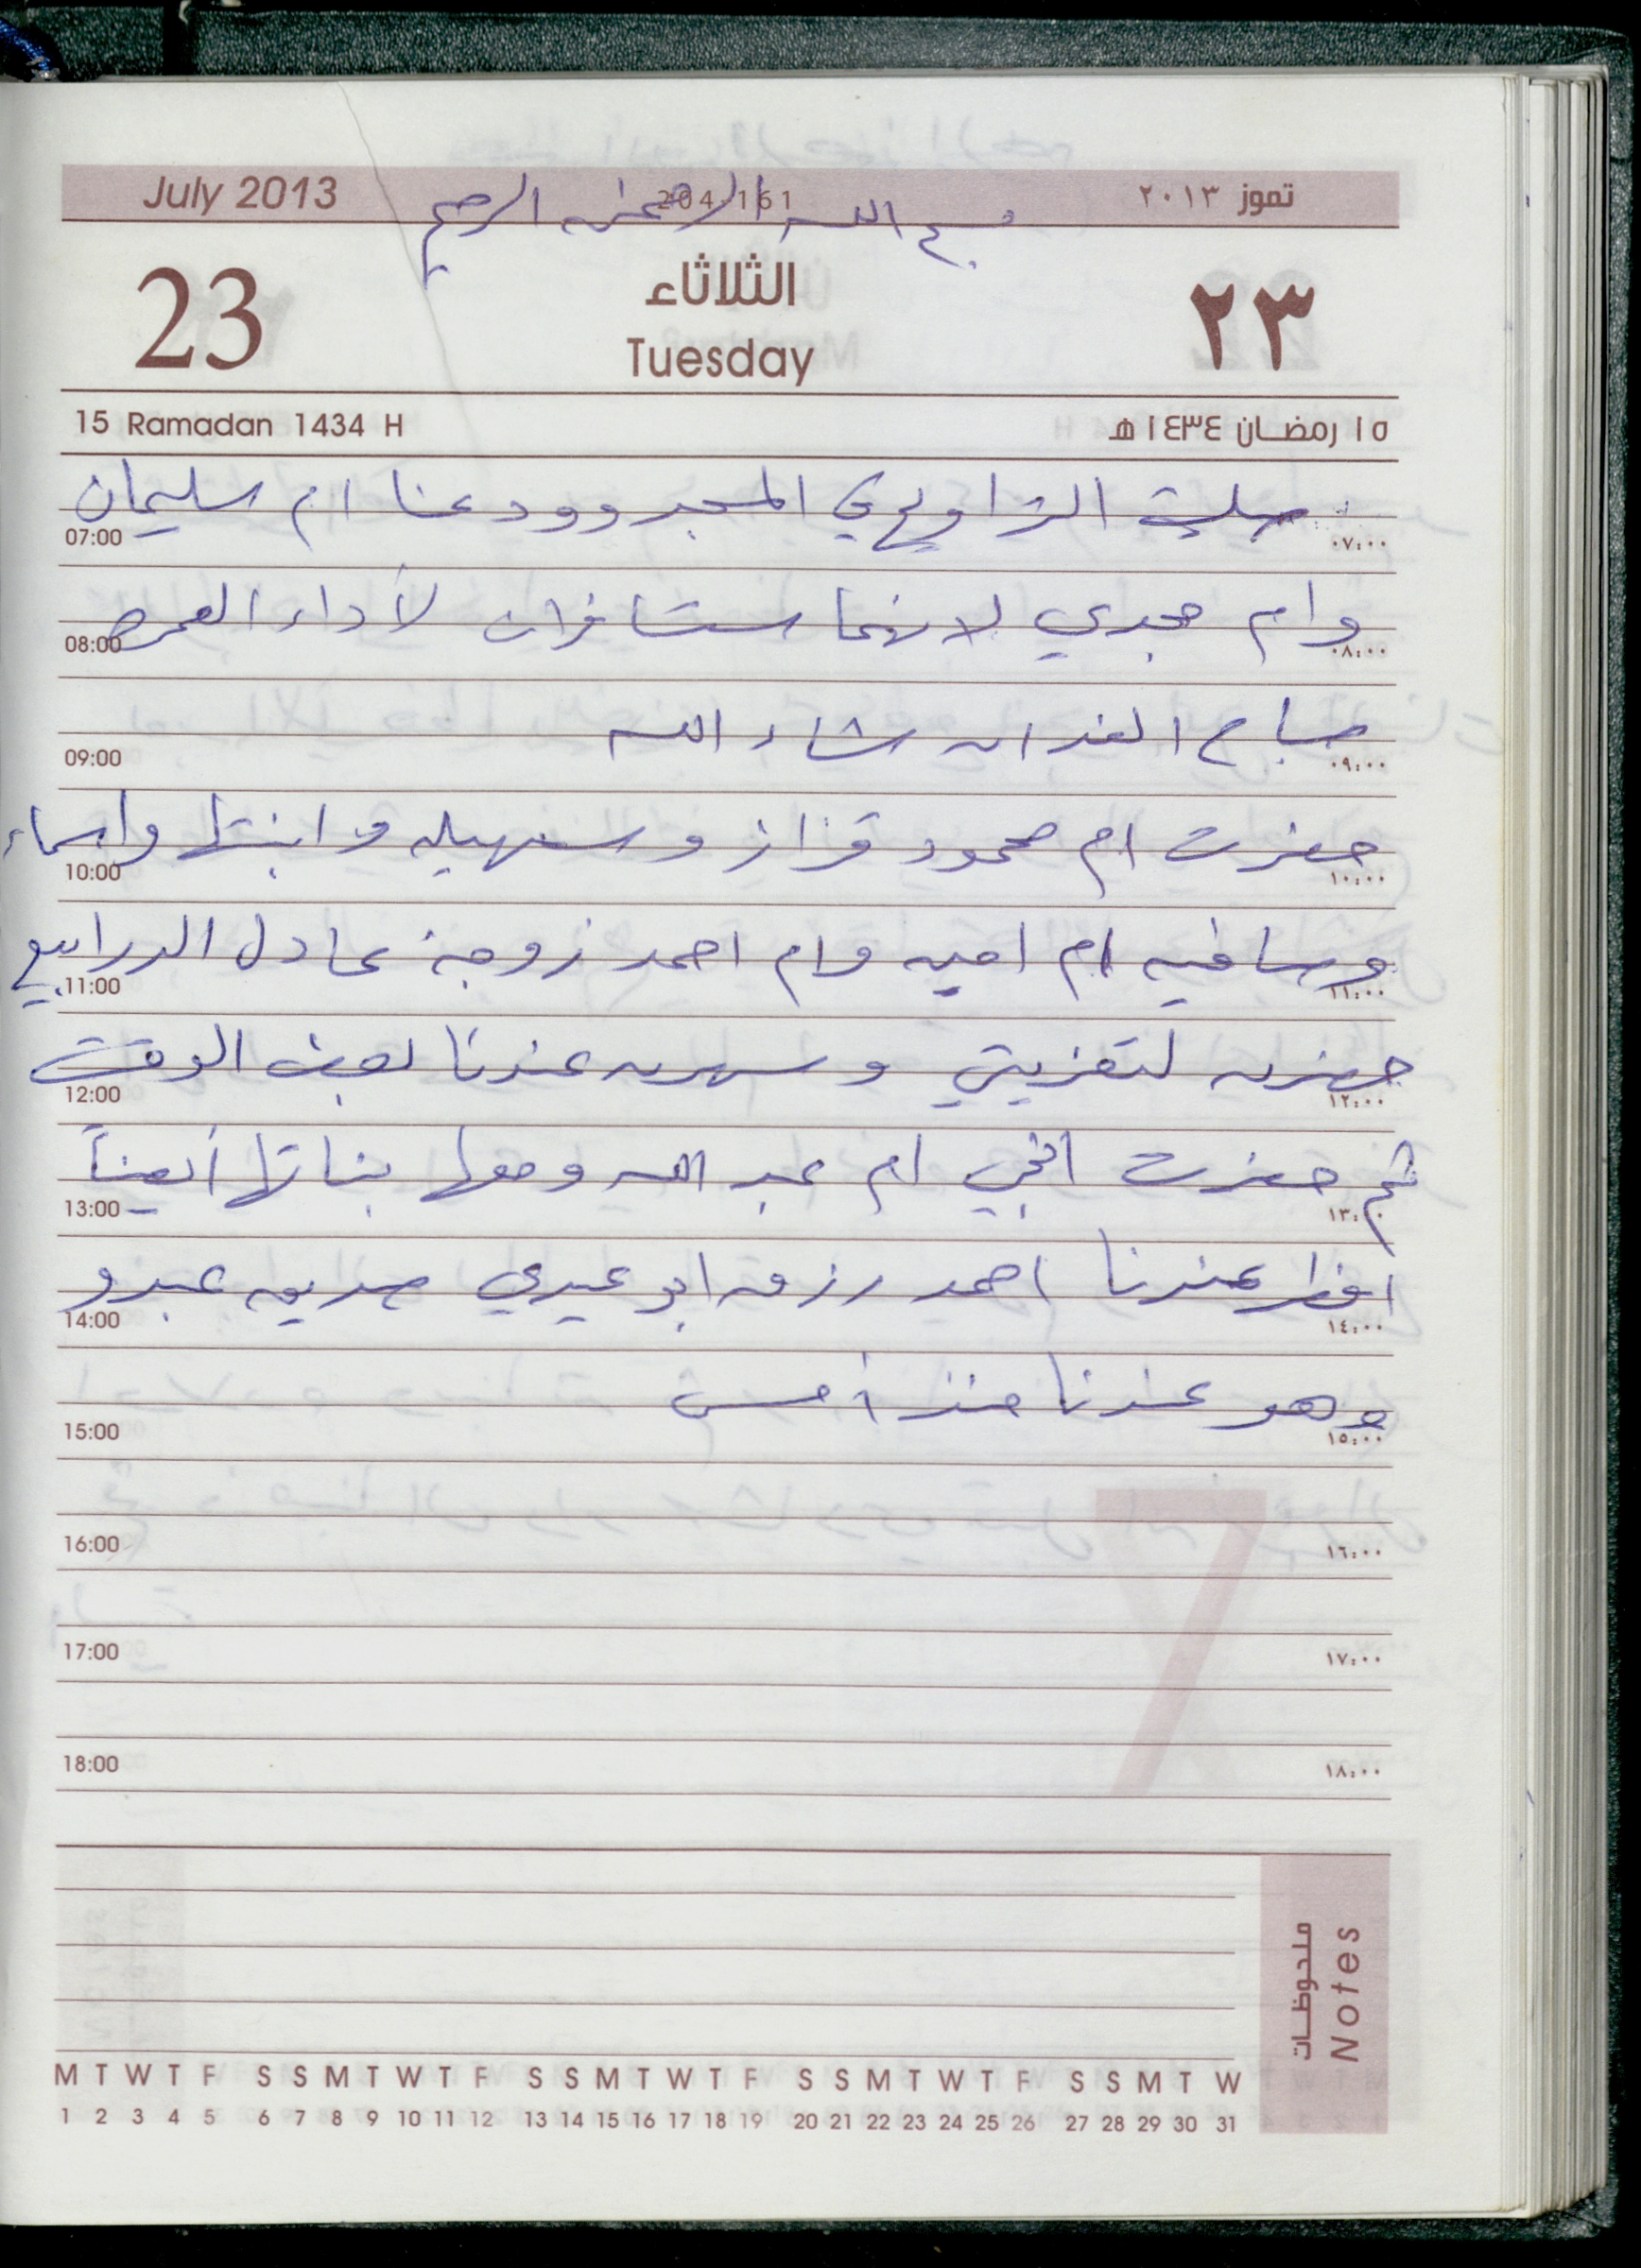 July 2013 204-161 تموز ٢٠١٣
بسم الله الرحمن الرحيم
23 الثلاثاء ٢٣
Tuesday
15 Ramadan 1434 H ١٥ رمضان ١٤٣٤ هـ
صليت التراويح في المسجد وودعنا ام سليمان
07:00 ٠٧:٠٠
وام مجدي لانهما ستسافران لأداء العمره
08:00 ٠٨:٠٠
صباح الغد ان شاء الله
09:00 ٠٩:٠٠
حضرت ام محمود قزاز وسهيله وابنتها واسماء
10:00 ١٠:٠٠
وصافيه ام اميه وام احمد زوجة عادل الدرابيع
11:00 ١١:٠٠
حضرن لتعزيتي وسهرن عندنا بعض الوقت
12:00 ١٢:٠٠
ثم حضرت اختي ام عبد الله ومعها بناتها أيضاً
13:00 ١٣:٠٠
افطر عندنا احمد رزق ابو عيدي صديق عبدو
14:00 ١٤:٠٠
وهو عندنا منذ أمس
15:00 ١٥:٠٠
16:00 ١٦:٠٠
17:00 ١٧:٠٠
18:00 ١٨:٠٠
ملحوظات
Notes
M T W T F S S M T W T F S S M T W T F S S M T W T F S S M T W
1 2 3 4 5 6 7 8 9 10 11 12 13 14 15 16 17 18 19 20 21 22 23 24 25 26 27 28 29 30 31